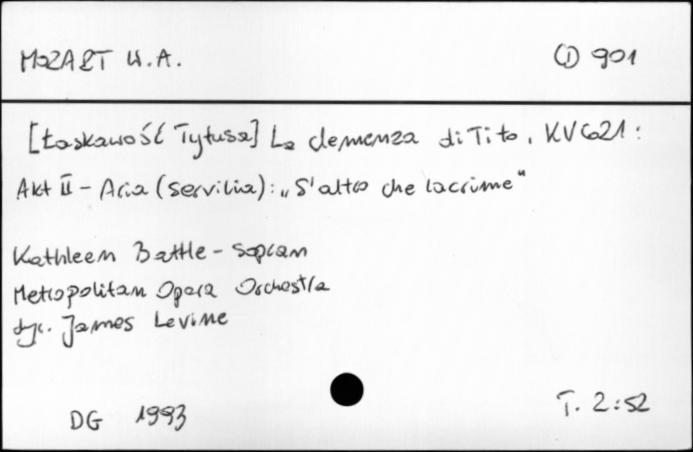 MOZART W.A. CD 901
[Łaskawość Tytusa] La clemenza di Tito, KV 621:
Akt II - Aria (Servilia): „S'altro che lacrime"
Kathleen Battle - sopran
Metropolitan Opera Orchestra
dyr. James Levine
DG 1993 T. 2:52